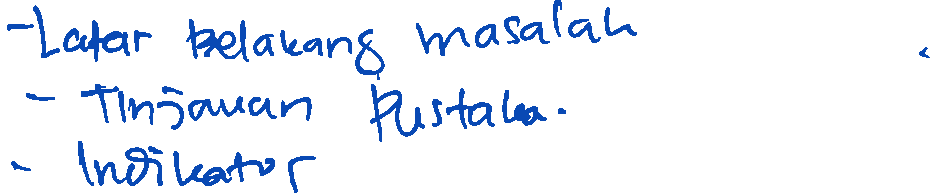 -Latar belakang masalah
- Tinjauan Pustaka.
- Indikator